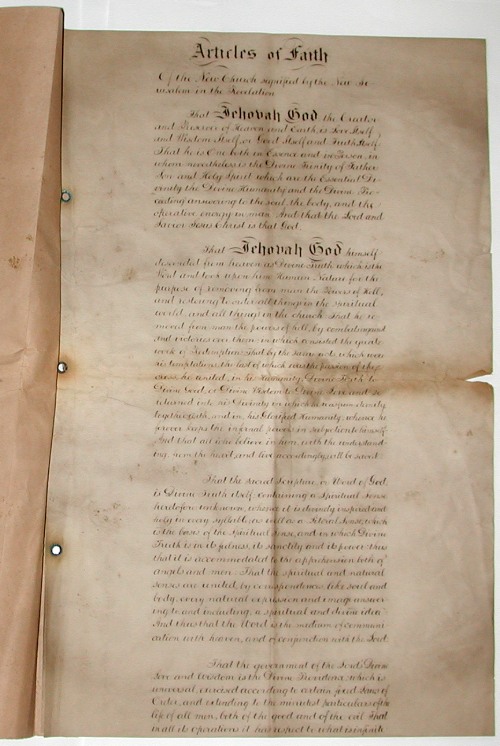 Articles of Faith
Of the New Church signified by the New Je-
rusalem in the Revelation
That Jehovah God the Creator
and Preserver of Heaven and Earth, is Love Itself,
and Wisdom Itself, or Good Itself and Truth Itself.
That he is One both in Essence and in Person, in
whom nevertheless is the Divine Trinity of Father
Son and Holy Spirit which are the Essential Di-
vinity the Divine Humanity and the Divine Pro-
ceeding answering to the soul, the body, and the
operative energy in man. And that the Lord and
Savior Jesus Christ is that God.
That Jehovah God himself
descended from heaven as Divine Truth which is the
Word and took upon him Human Nature for the
purpose of removing from man the Powers of Hell,
and restoring to order all things in the spiritual
world, and all things in the church. That he re-
moved from man the powers of hell, by combats against
and victories over them; in which consisted the great
work of Redemption; that by the same acts, which were
his temptations, the last of which was the passion of the
cross, he united, in his Humanity, Divine Truth to
Divine Good, or Divine Wisdom to Divine Love, and so
returned into his Divinity in which he was from eternity
together with, and in, his Glorified Humanity; whence he
forever keeps the infernal powers in subjection to himself
And that all who believe in him, with the understand-
ing, from the heart, and live accordingly, will be saved.
That the Sacred Scripture, or Word of God,
is Divine Truth itself, containing a Spiritual Sense
heretofore unknown, whence it is divinely inspired and
holy in every syllable; as well as a Literal Sense, which
is the basis of the Spiritual Sense, and in which Divine
Truth is in its fulness, its sanctity and its power: thus
that it is accommodated to the apprehension both of
angels and men. That the spiritual and natural
senses are united, by correspondences, like soul and
body, every natural expression and image answer-
ing to and including, a spiritual and divine idea
And thus that the Word is the medium of communi-
cation with heaven, and of conjunction with the Lord.
That the government of the Lord's Divine
Love and Wisdom is the Divine Providence; which is
universal, exercised according to certain fixed laws of
Order, and extending to the minutest particulars of the
life of all men, both of the good and of the evil. That
in all its operations it has respect to what is infinite